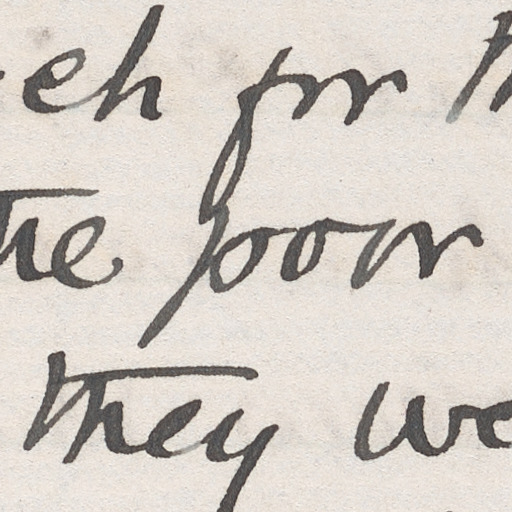 eh for
the poor
they we